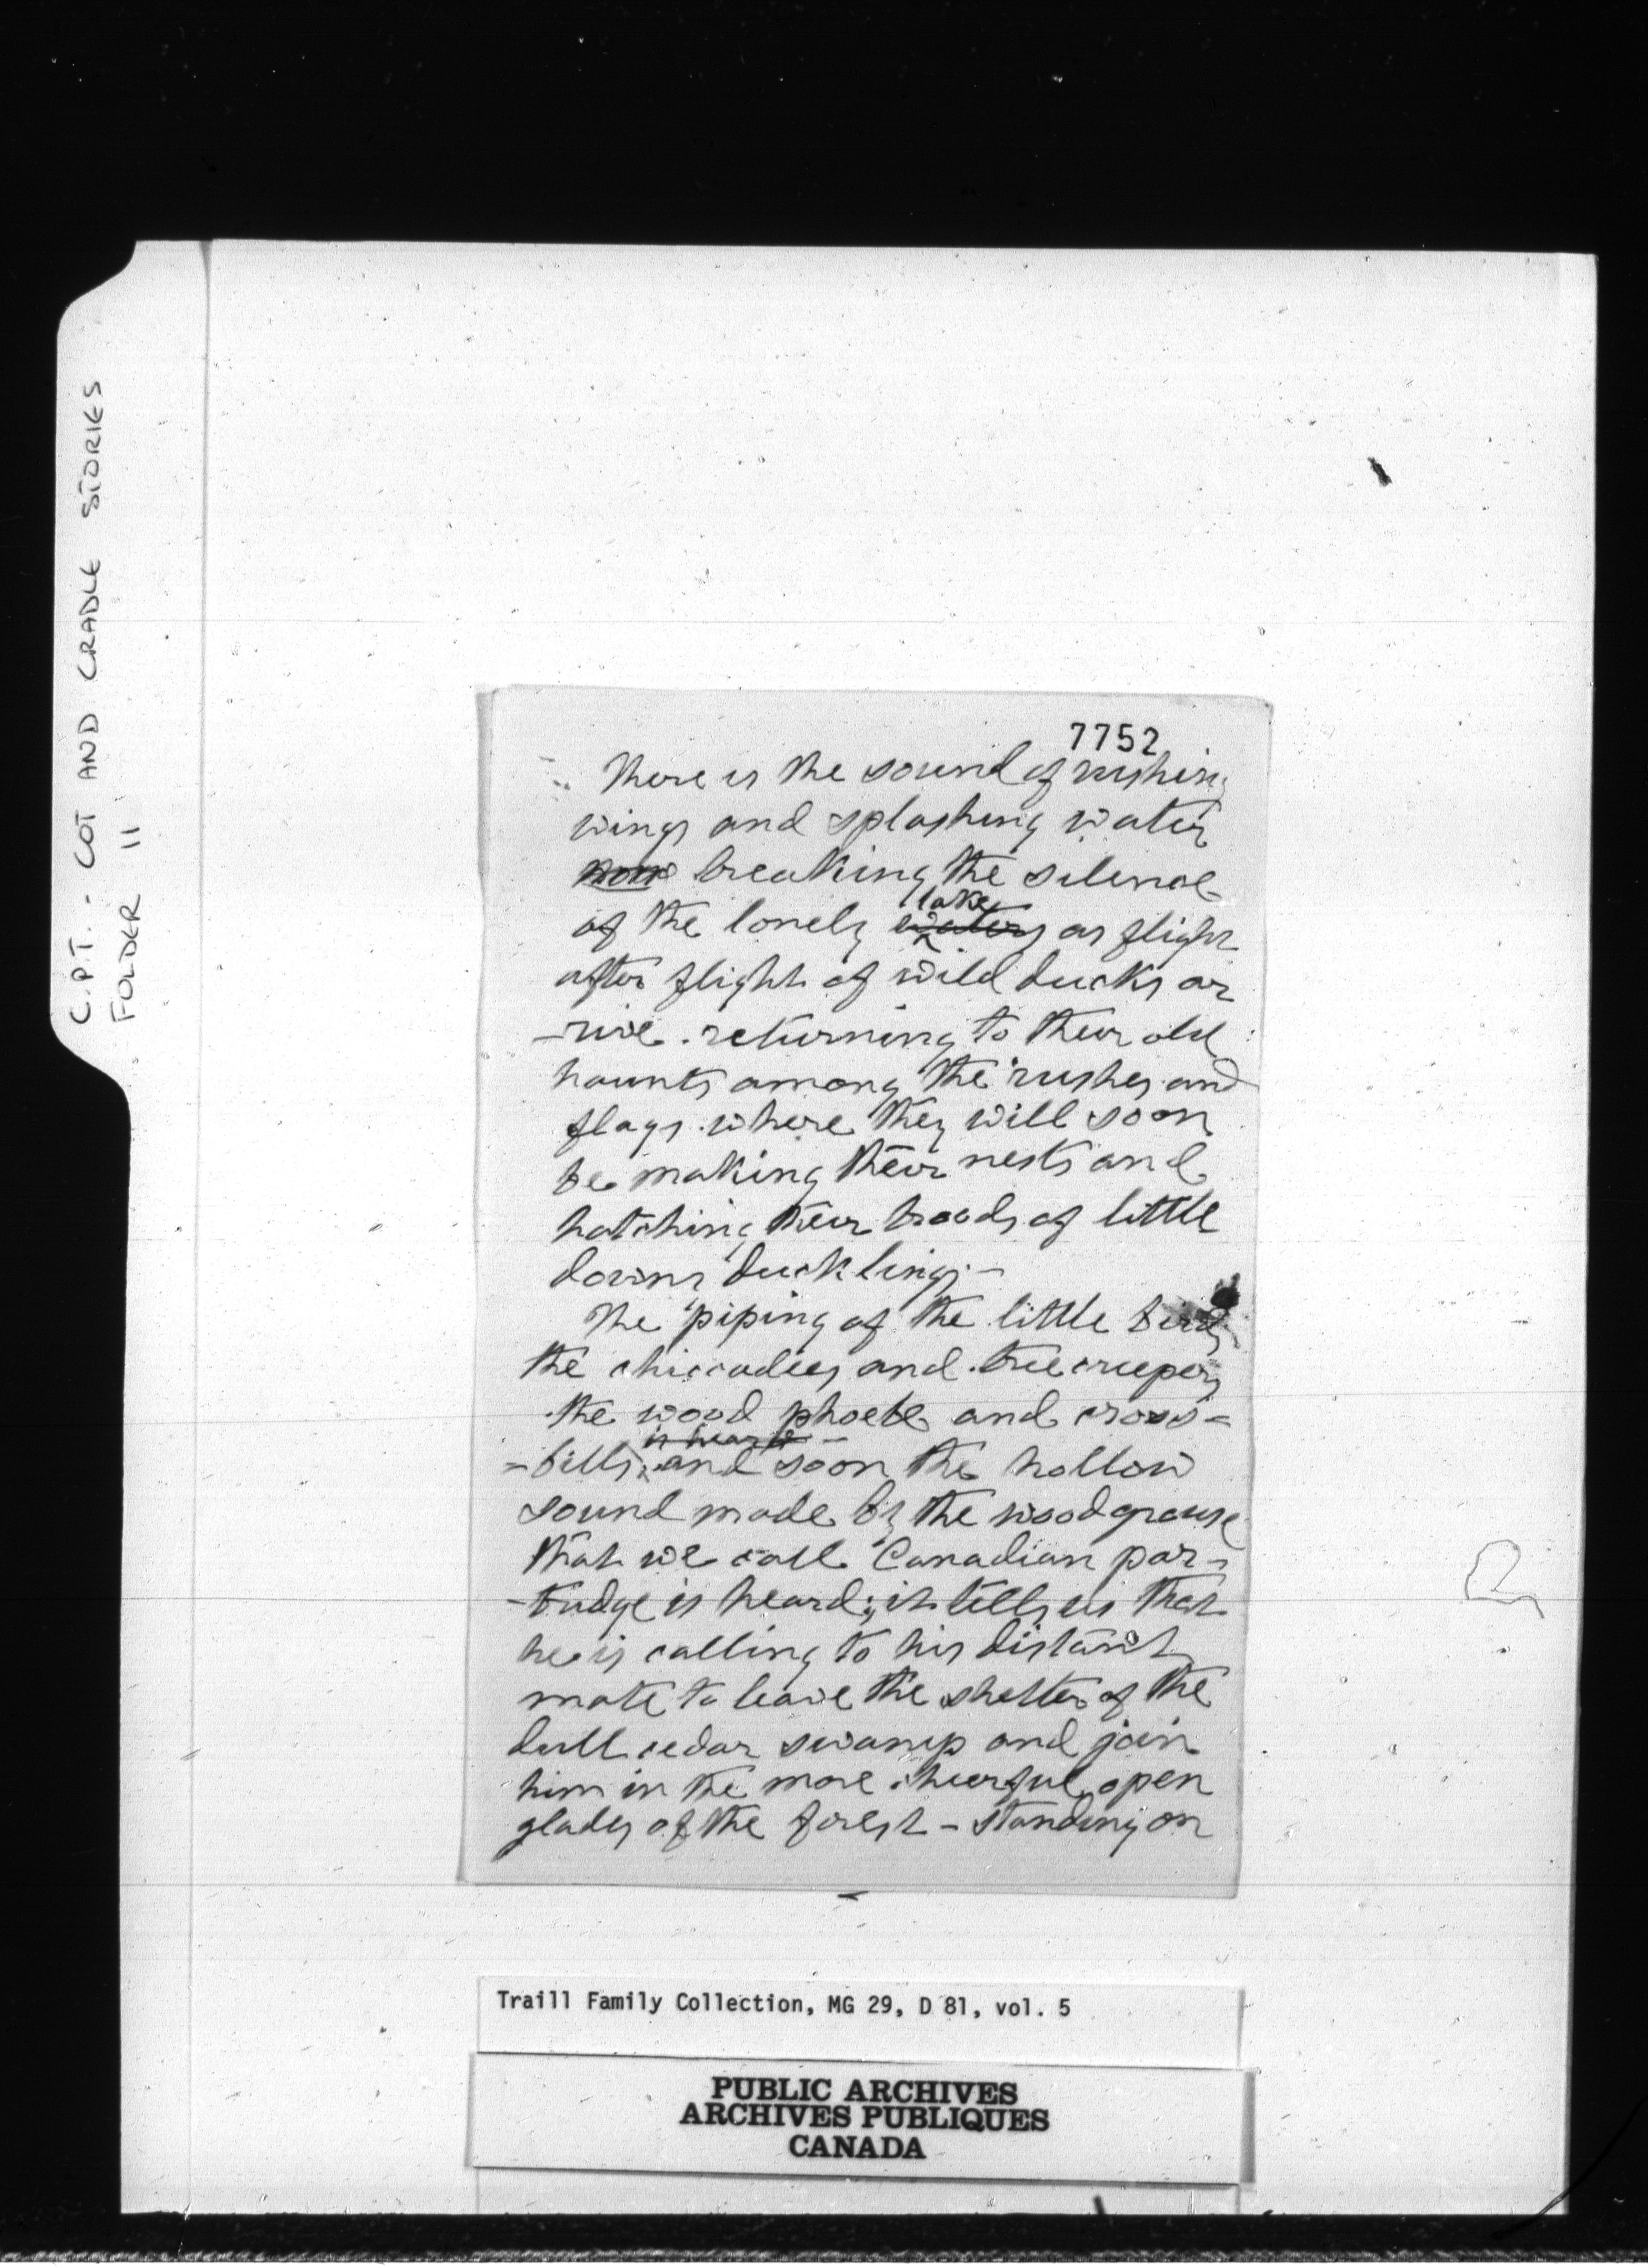 C.P.T. - COT AND CRADLE STORIES
FOLDER 11
7752
There is the sound of rushing
wings and splashing water
now breaking the silence
lake
of the lonely waters as flight
after flight of wild ducks ar
-rive . returning to their old
haunts among the rushes and
flags . where they will soon
be making their nests and
hatching their broods of little
downy ducklings -
The piping of the little birds
the chiccadees and tree creepers
the wood phoebe and cross-
is heard -
-bills, and soon the hollow
sound made by the wood grouse
that we call Canadian par-
-tridge is heard; it tells us that
he is calling to his distant
mate to leave the shelter of the
dull cedar swamp and join
him in the more cheerful open
glades of the forest - standing on
Traill Family Collection, MG 29, D 81, vol. 5
PUBLIC ARCHIVES
ARCHIVES PUBLIQUES
CANADA